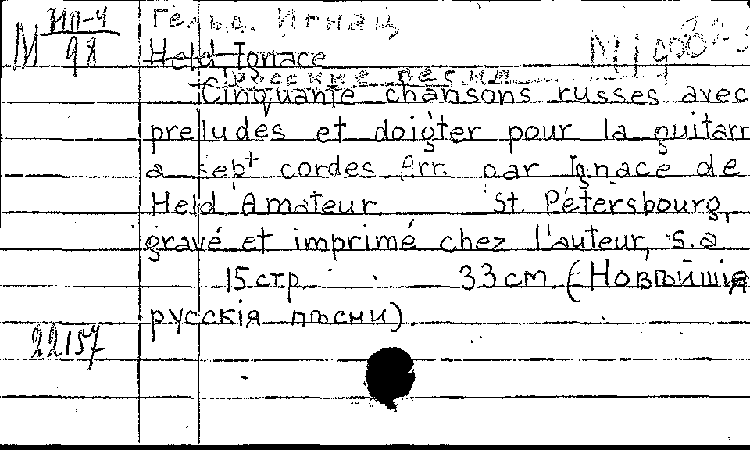 М ИП-4/98
Гельд. Игнац
Held Ignace
Русские песни
Cinquante chansons russes avec
preludes et doigter pour la guitarr
a sept cordes Arr. par Ignace de
Held Amateur St Pétersbourg,
gravé et imprimé chez l'auteur, s.a
15 стр. 33 cm (Новѣйшія
русскія пѣсни).
22157